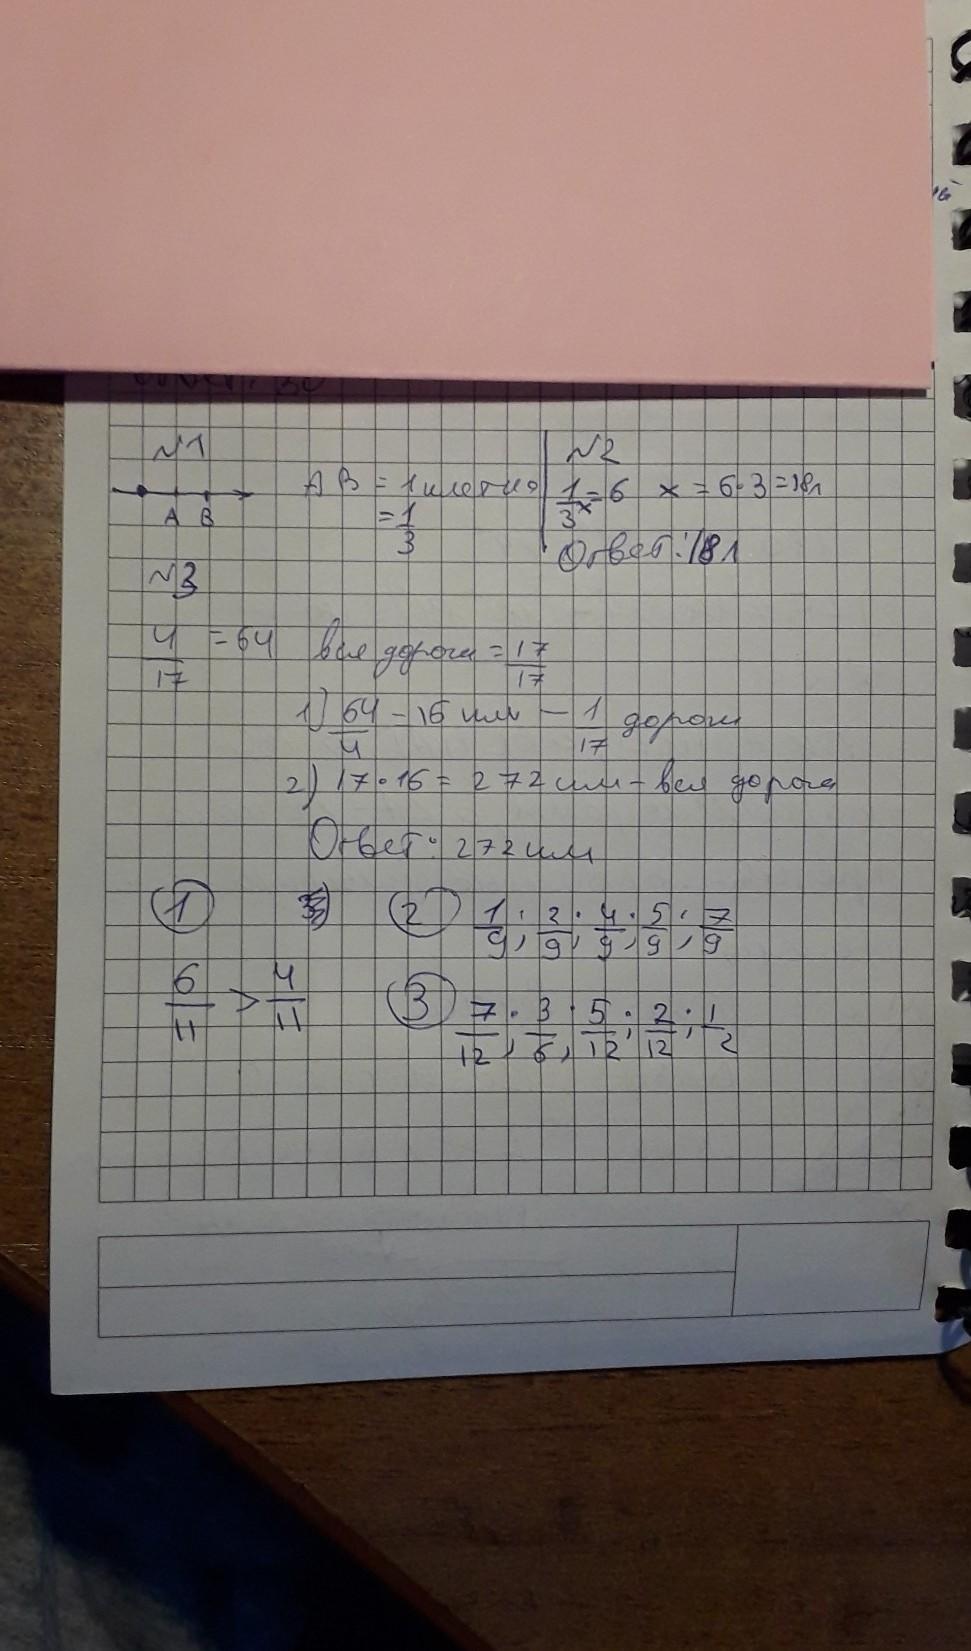 Ответ: 30
№1
A B
AB = 1 клетка
= 1/3
№2
1/3 x = 6 x = 6·3 = 18л
Ответ: 18л
№3
4/17 = 64 вся дорога = 17/17
1) 64/4 = 16 км — 1/17 дороги
2) 17·16 = 272 км – вся дорога
Ответ: 272 км
1
6/11 > 4/11
2 1/9; 2/9; 4/9; 5/9; 7/9
3 7/12; 3/6; 5/12; 2/12; 1/2